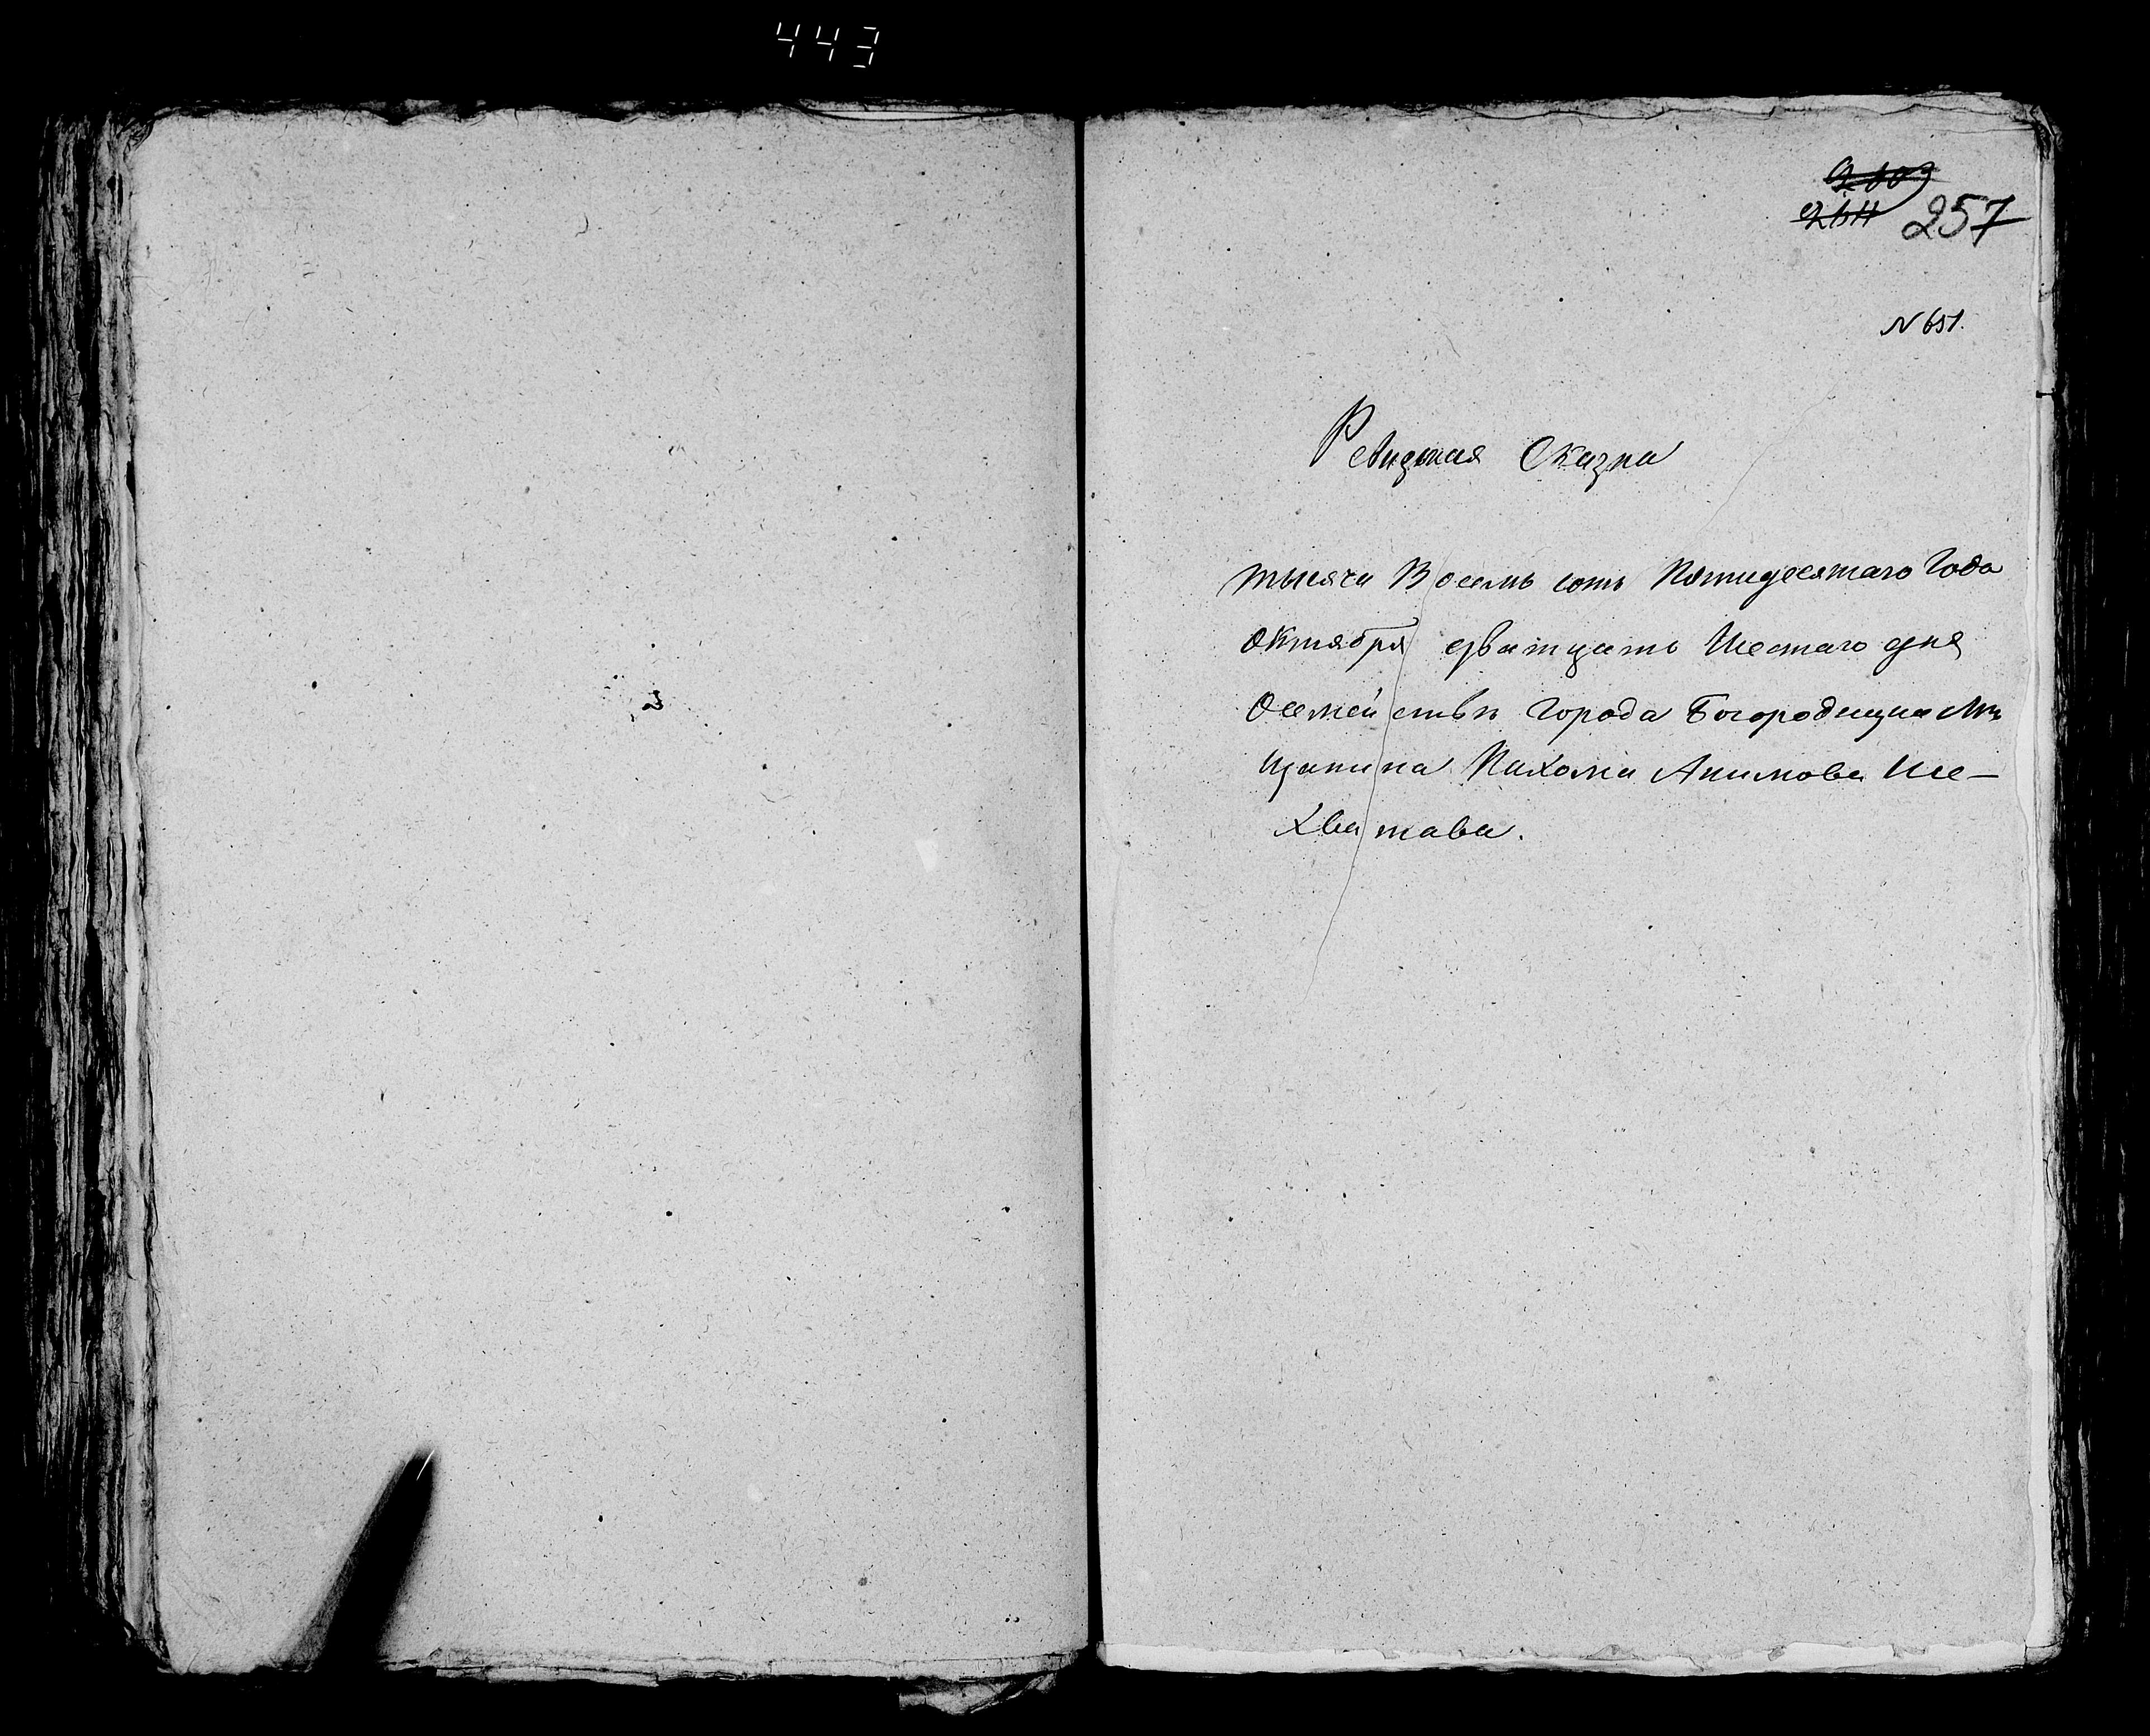 443
257
N 651.
Ревизкая Сказка
тысяча Восемь сотъ Пятидесятаго Года
Октября дватцать Шестаго дня
Осемействѣ Города Богородицка Мѣ
щанина Пахома Акимова Ше—
Хватава.